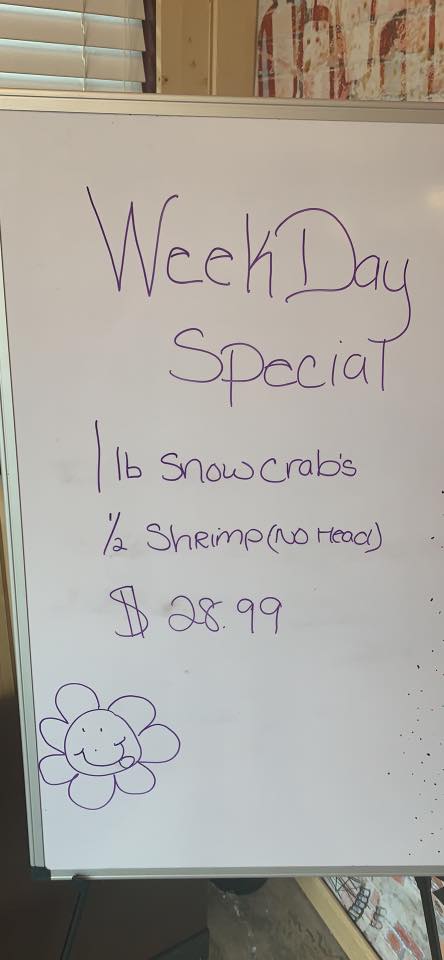 WeekDay
Special
1 lb Snowcrab's
1/2 Shrimp (No Head)
$ 28.99